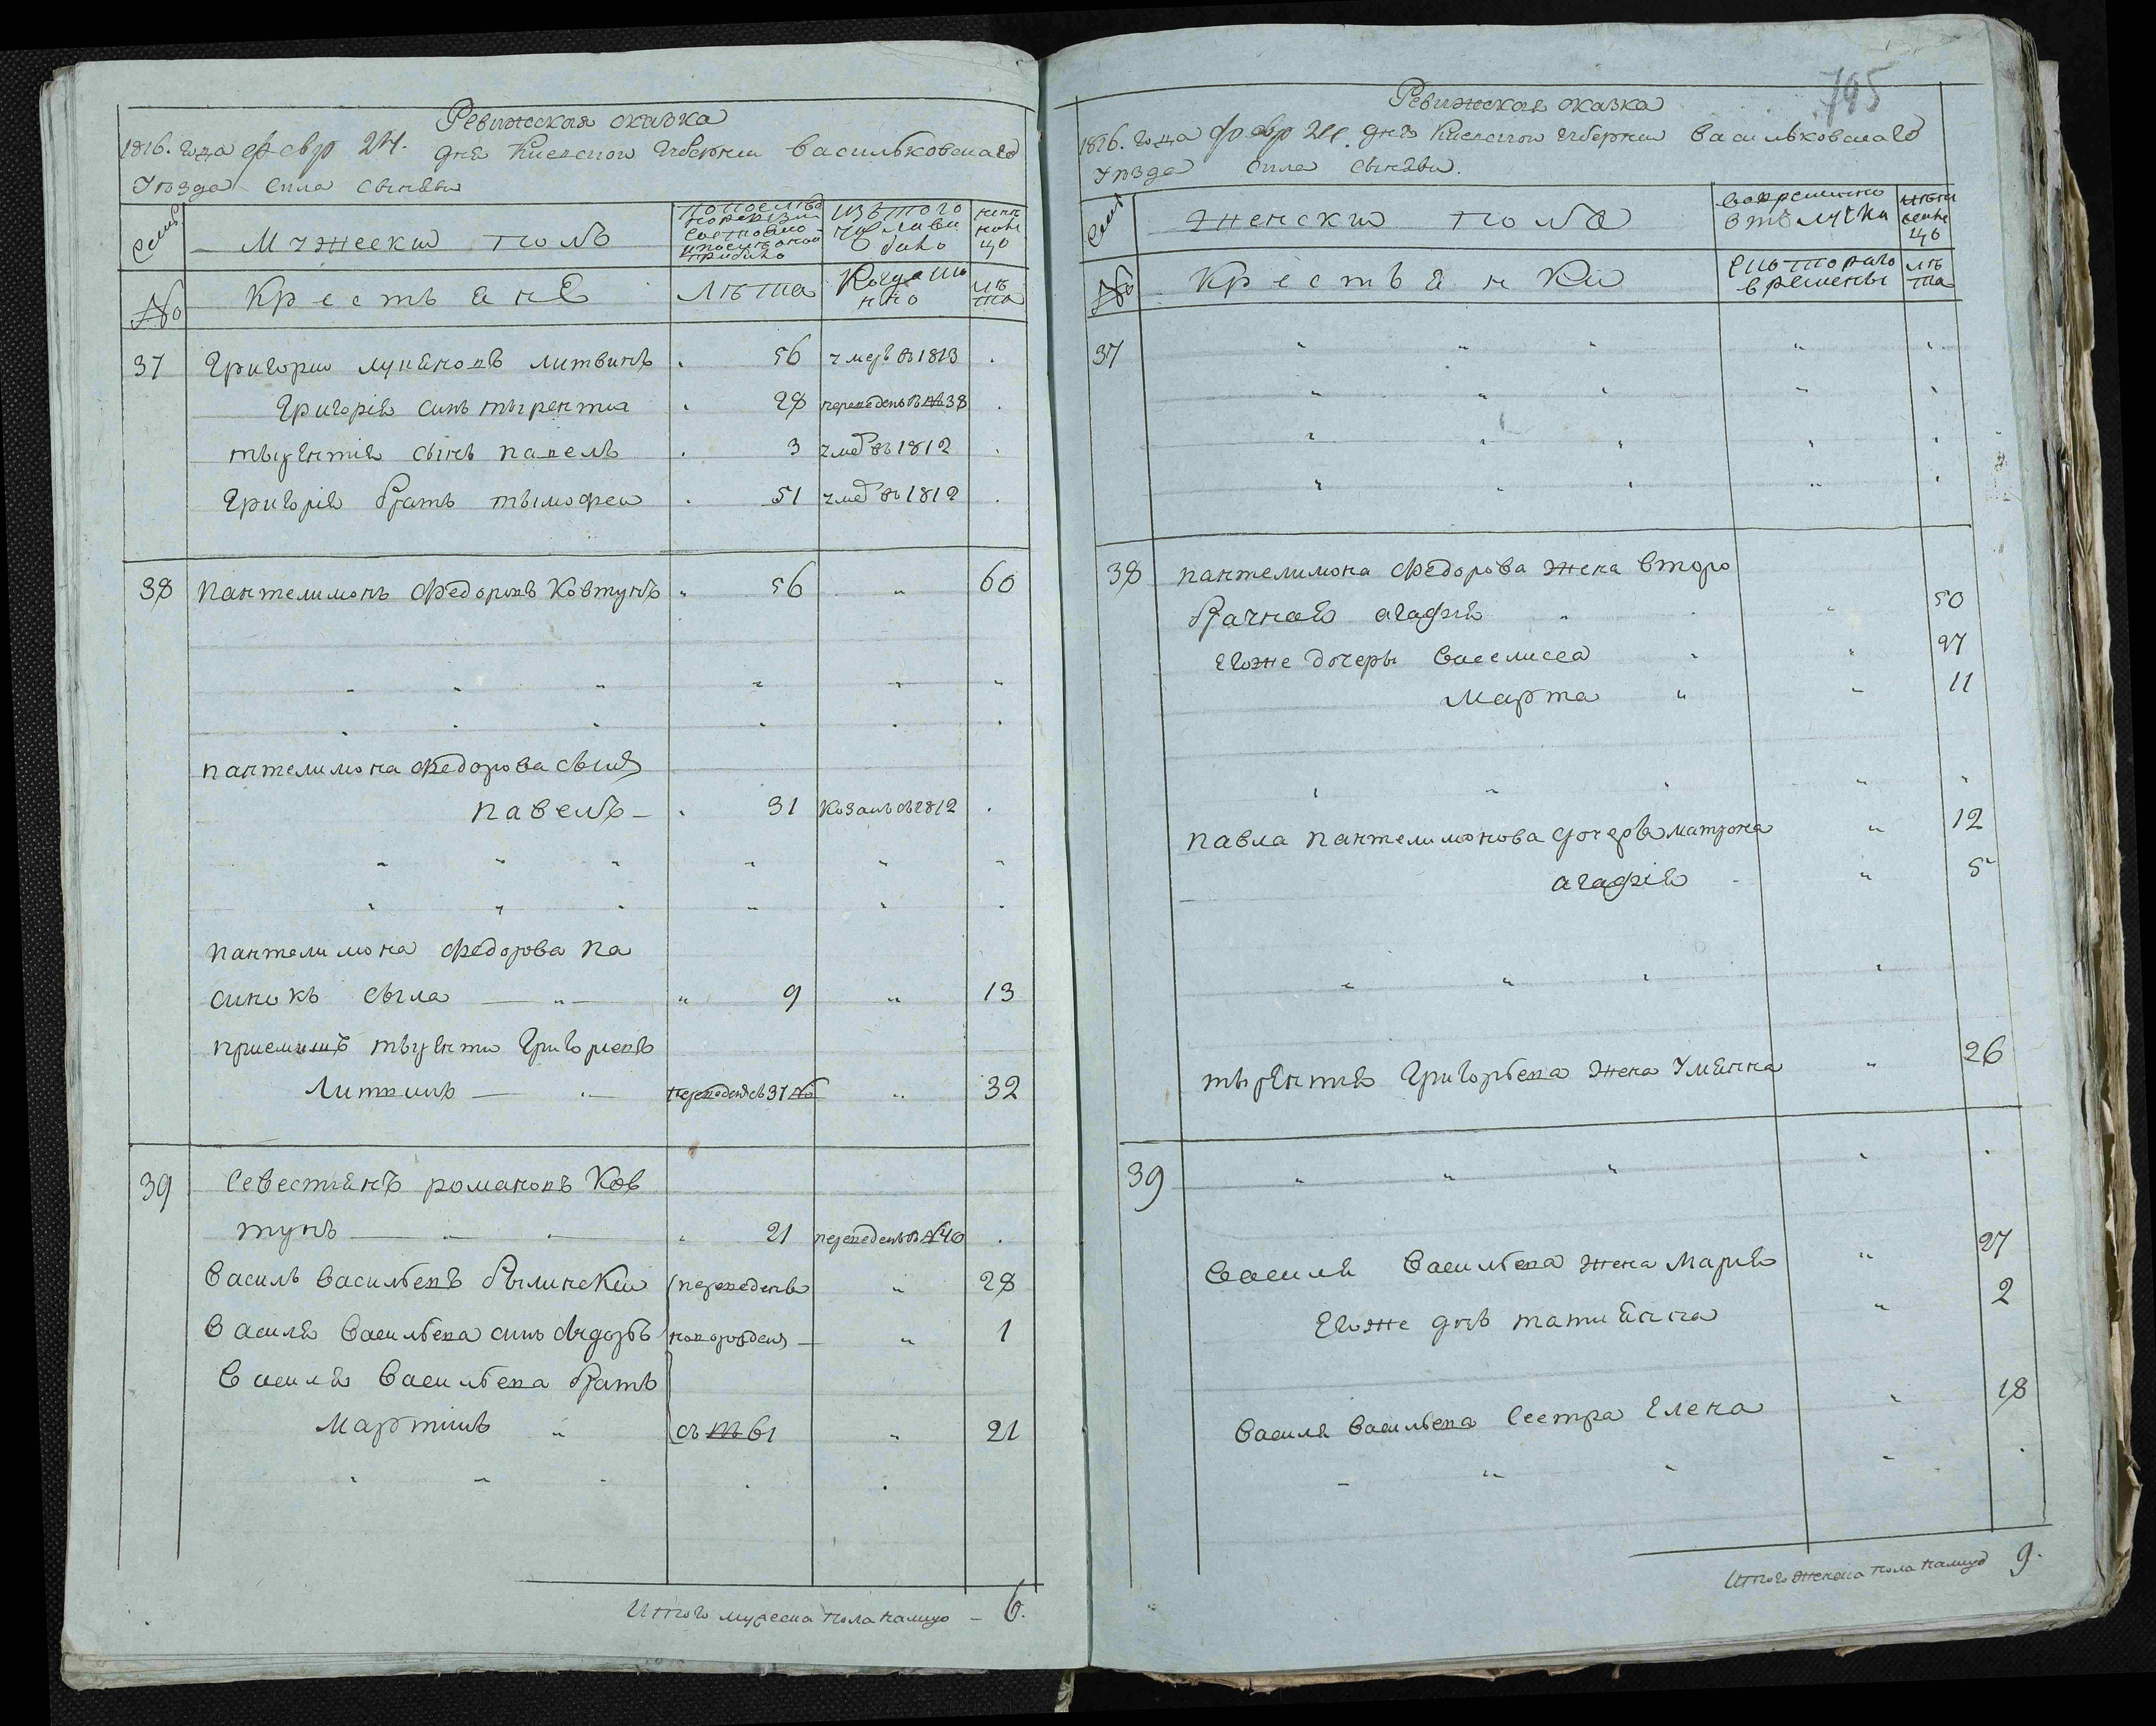 Ревижская сказка
1816. года февр 24. дня Киевскои Губернии васильковскаго
Уѣзда Сила Сыняви
Семьи
Мужески полъ
Изътого
числа вы
было
№
Крестьянѣ
Лѣта
Когда им
нно
лѣ
та
37 Григории луцяновъ литвинъ . 56 умерѣ въ 1813 .
Григорія синъ тырентии . 28 переведенъ въ № 38 .
тырентія сынъ павелъ . 3 умер въ 1812 .
Григорія братъ тымофеи . 51 умер въ 1812 .
38 Пантелимонъ Федоровъ Ковтунъ " 56 " 60
пантелимона Федорова сынъ
павелъ - . 31 Козакъ въ 1812 .
пантелимона Федорова па
синокъ сыла " 9 " 13
приемышъ тырентии Григориевъ
Литвинъ переведенъ съ 37 № " 32
39 Севестіянъ романовъ Ков
тунъ " 21 переведенъ въ № 40 .
Василь Васильевъ Рылинскии переведенъ " 28
Василя Васильева синъ Федоръ новорожденъ " 1
Василя Васильева братъ
Мартинъ " съ № 61 " 21
Итого мужеска пола налицо - 6.
795
Ревижская сказка
1816. года февр 24. дня Киевскои Губернии Васильковскаго
Уѣзда Сила Сыняви.
Семьи
Женски полъ
вовременно
отълучки
ныне
налы
цо
№
Крестьянки
Сыътораго
времены
лѣ
та
37
38 пантелимона Федорова жена второ
брачная агафия " " 50
Егоже дочеры Васелисса " " 27
Марта " " 11
павла пантелимонова дочерѣ матрона " 12
агафія - " 5
тырентия Григорьева жена Уляна " 26
39
Василя Васильева жена Мария " 27
Егоже дчъ татияна " 2
Василя Васильева Сестра Елена " 18
Итого женска пола налицо 9.